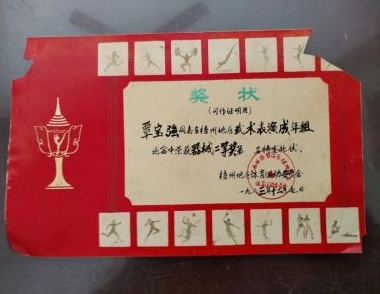 奖状
(可作证明用)
覃宝强同志在梧州地区武术表演成年组
比赛中荣获器械二等奖第 名特发此状。
梧州地区体育运动委员会
一九八二年十二月 日